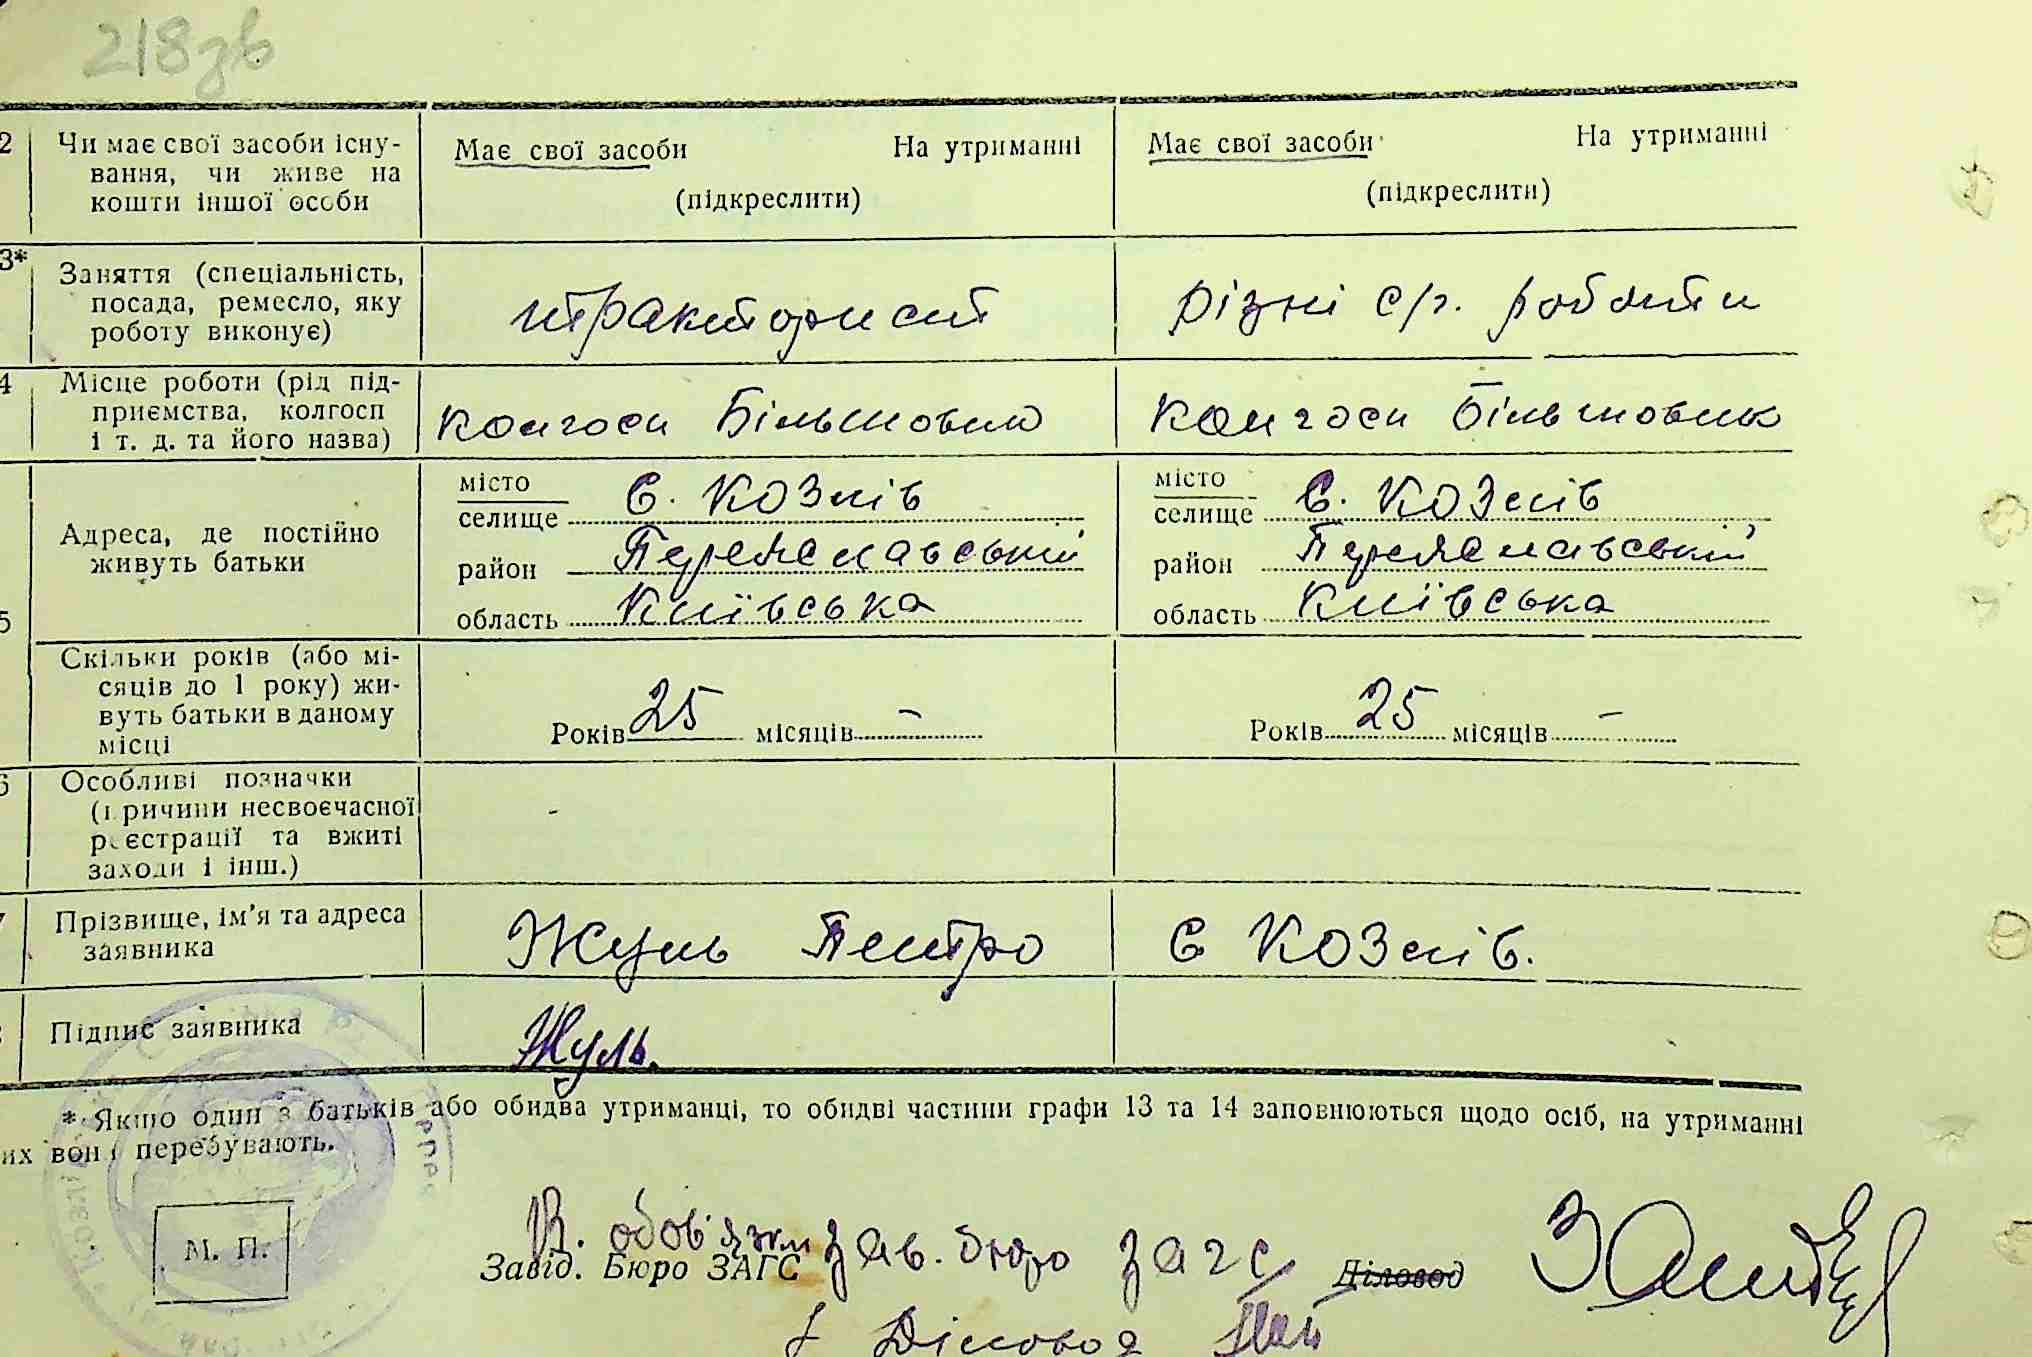 218зв
2 Чи має свої засоби існу- Має свої засоби На утриманні Має свої засоби На утриманні
вання, чи живе на
кошти іншої особи (підкреслити) (підкреслити)
3* Заняття (спеціальність,
посада, ремесло, яку тракторист різні с/г. роботи
роботу виконує)
4 Місце роботи (рід під-
приємства, колгосп колгосп Більшовик колгосп Більшовик
і т. д. та його назва)
місто місто
селище с. Козлів селище с. Козлів
5 Адреса, де постійно
живуть батьки район Переяславський район Переяславський
область Київська область Київська
Скільки років (або мі-
сяців до 1 року) жи-
вуть батьки в даному Років 25 місяців – Років 25 місяців –
місці
6 Особливі позначки
(причини несвоєчасної -
реєстрації та вжиті
заходи і інш.)
7 Прізвище, ім'я та адреса Жуль Петро с Козлів.
заявника
Підпис заявника Жуль.
* Якщо один з батьків або обидва утриманці, то обидві частини графи 13 та 14 заповнюються щодо осіб, на утриманні
их вони перебувають.
В. обов'язки зав. бюро загс
М. П. Завід. Бюро ЗАГС Діловод
Діловод